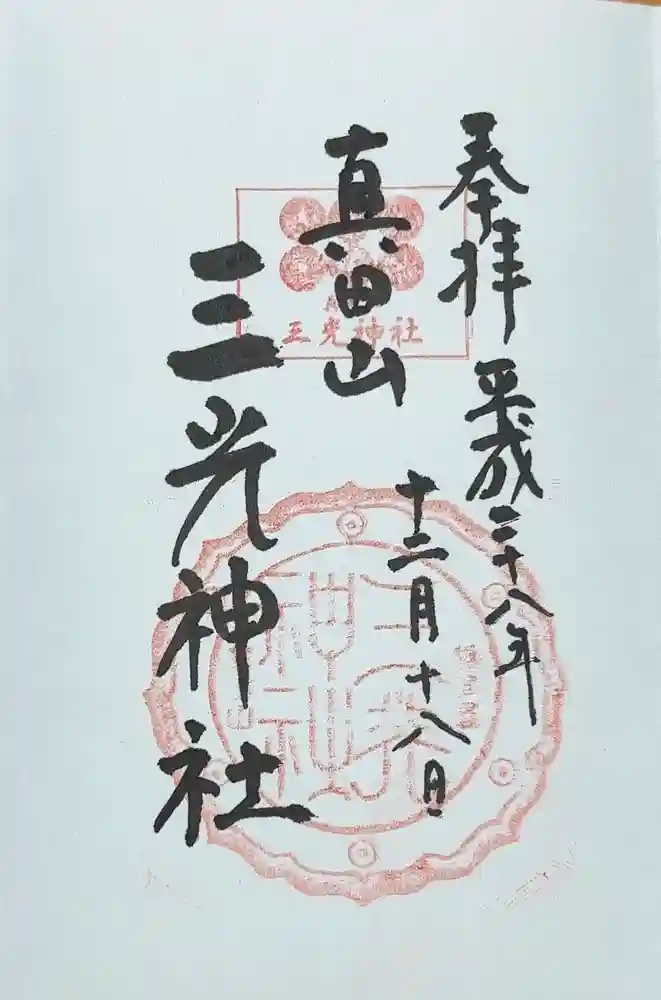 奉拝 平成二十八年
十二月十八日
真田山
三光神社
三光神社